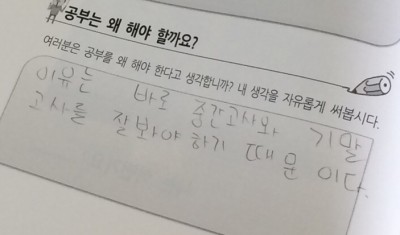 공부는 왜 해야 할까요?
여러분은 공부를 왜 해야 한다고 생각합니까? 내 생각을 자유롭게 써봅시다.
이유는 바로 중간고사와 기말
고사를 잘봐야 하기 때문 이다.